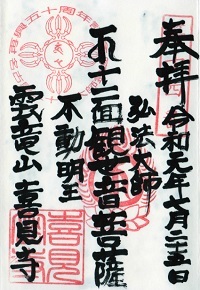 奉拝
令和元年七月二十五日
弘法大師
十一面観世音菩薩
不動明王
雲竜山喜見寺
喜見